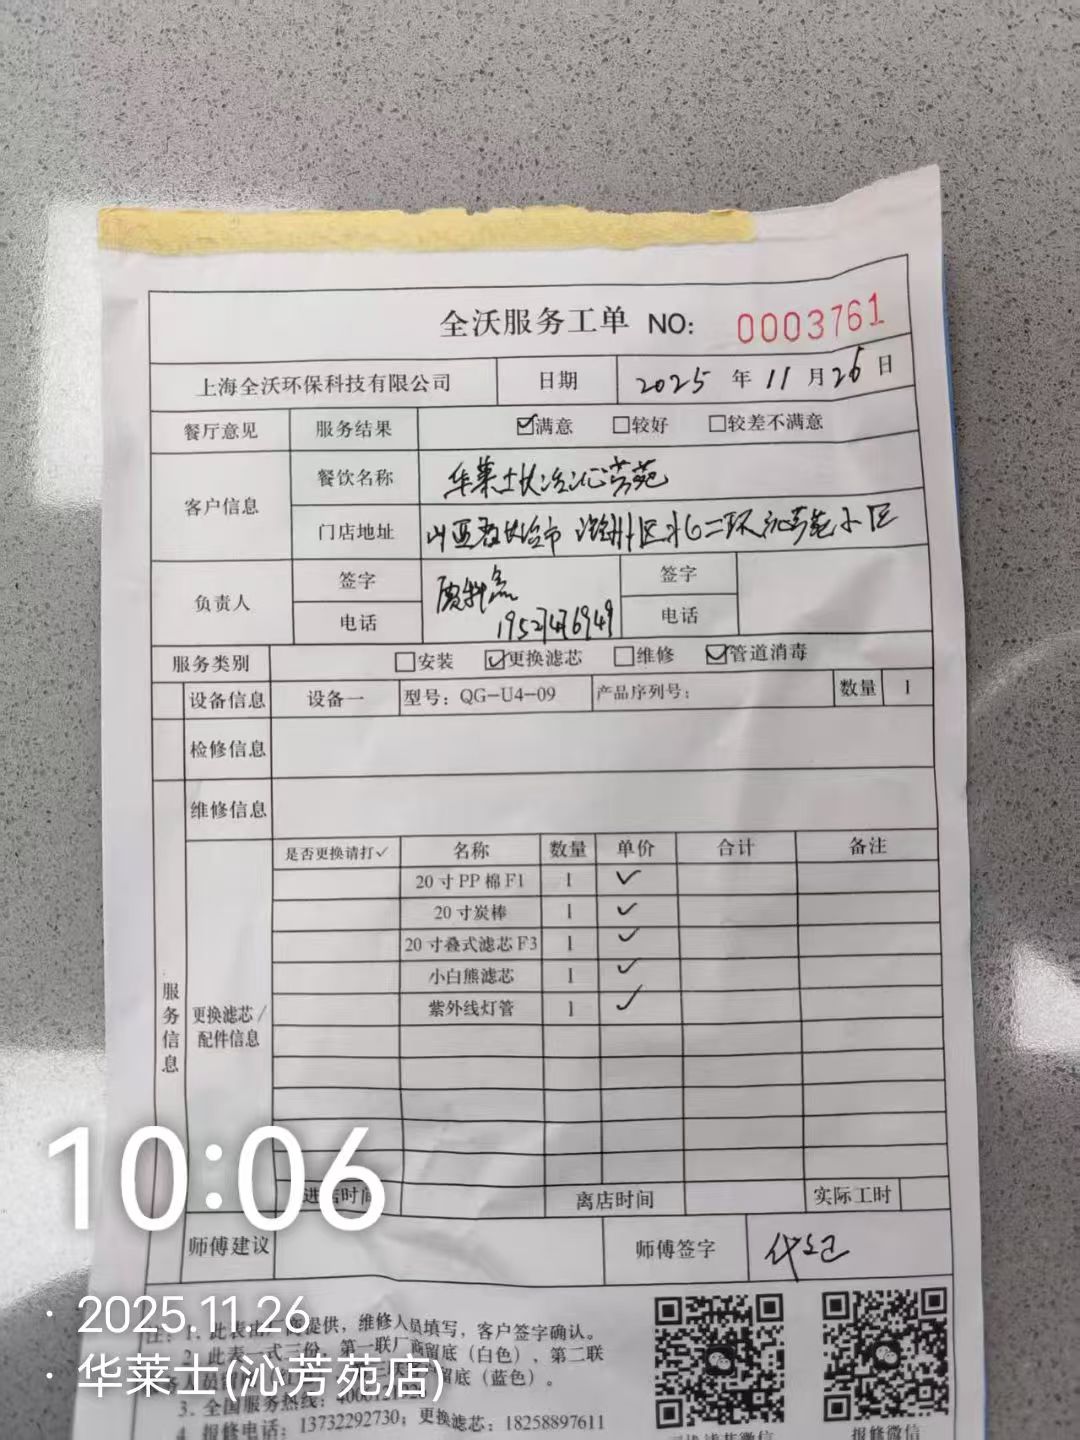 全沃服务工单 NO: 0003761
上海全沃环保科技有限公司 日期 2025 年 11 月 26 日
餐厅意见 服务结果 ☑满意 □较好 □较差不满意
客户信息 餐饮名称 华莱士长冶沁芳苑
门店地址 山西省长治市 潞州区北二环沁芳苑小区
负责人 签字 签字
电话 电话
服务类别 □安装 ☑更换滤芯 □维修 ☑管道消毒
设备信息 设备一 型号: QG-U4-09 产品序列号: 数量 1
检修信息
维修信息
服务信息
更换滤芯/
配件信息
是否更换请打✓ 名称 数量 单价 合计 备注
20寸PP棉F1 1 ✓
20寸炭棒 1 ✓
20寸叠式滤芯F3 1 ✓
小白熊滤芯 1 ✓
紫外线灯管 1 ✓
进店时间 离店时间 实际工时
师傅建议 师傅签字
10:06
· 2025.11.26
· 华莱士(沁芳苑店)
注: 1. 此表由 商提供，维修人员填写，客户签字确认。
2. 此表一式三份，第一联厂商留底（白色），第二联
留底（蓝色）。
3. 全国服务热线:
4. 报修电话: 13732292730; 更换滤芯: 18258897611
报修微信